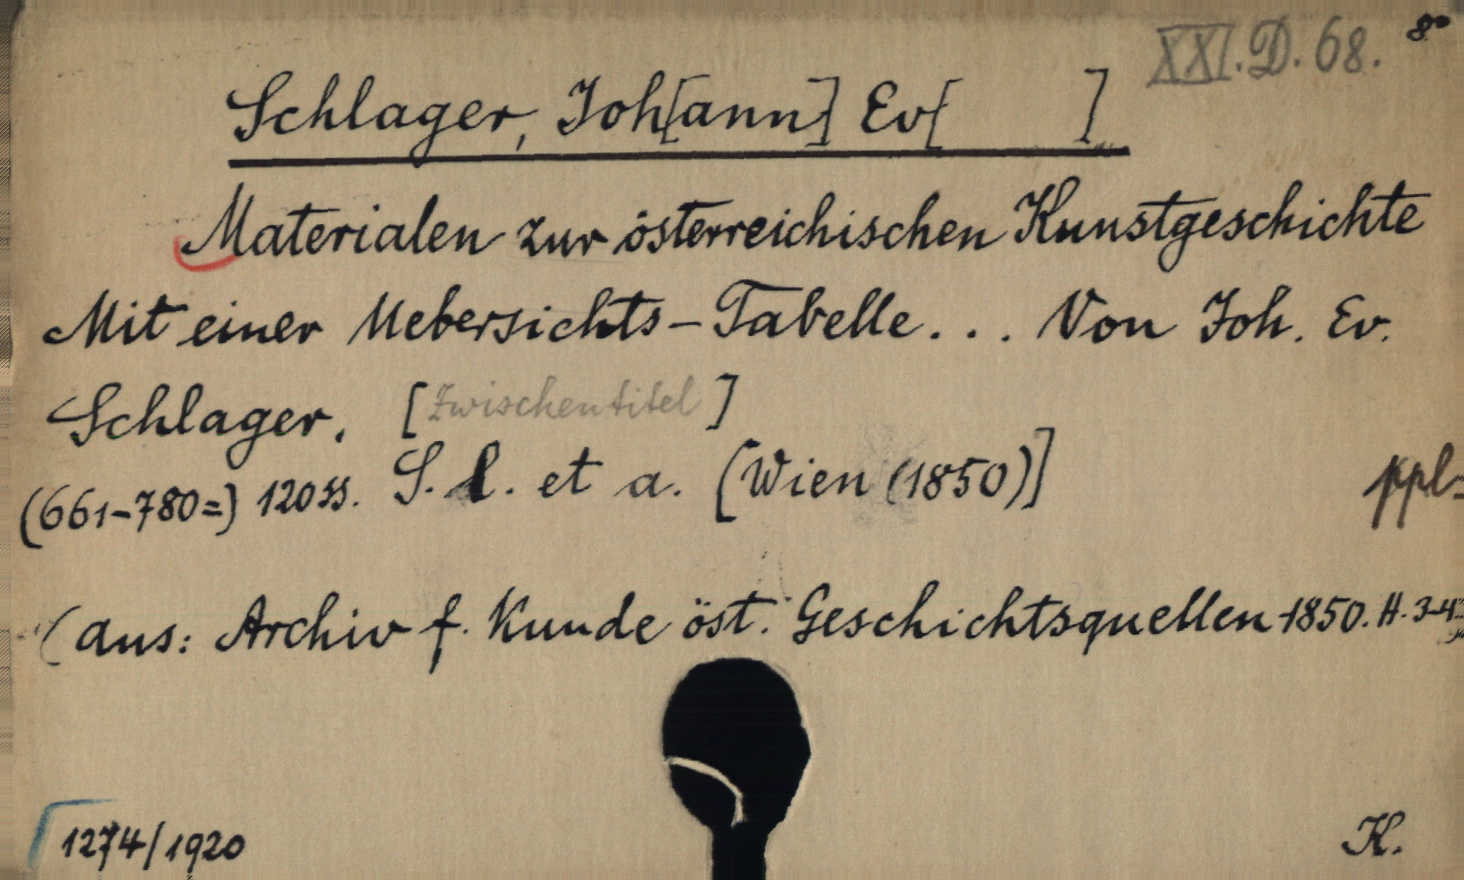 XXI.D.68. 8°
Schlager, Joh[ann] Ev[ ]
Materialen zur österreichischen Kunstgeschichte
Mit einer Uebersichts-Tabelle... Von Joh. Ev.
Schlager. [Zwischentitel]
(661-780=) 120 ss. S. l. et a. [Wien (1850)]
ppl=
(aus: Archiv f. Kunde öst. Geschichtsquellen 1850. H. 3-4
1274/1920
K.